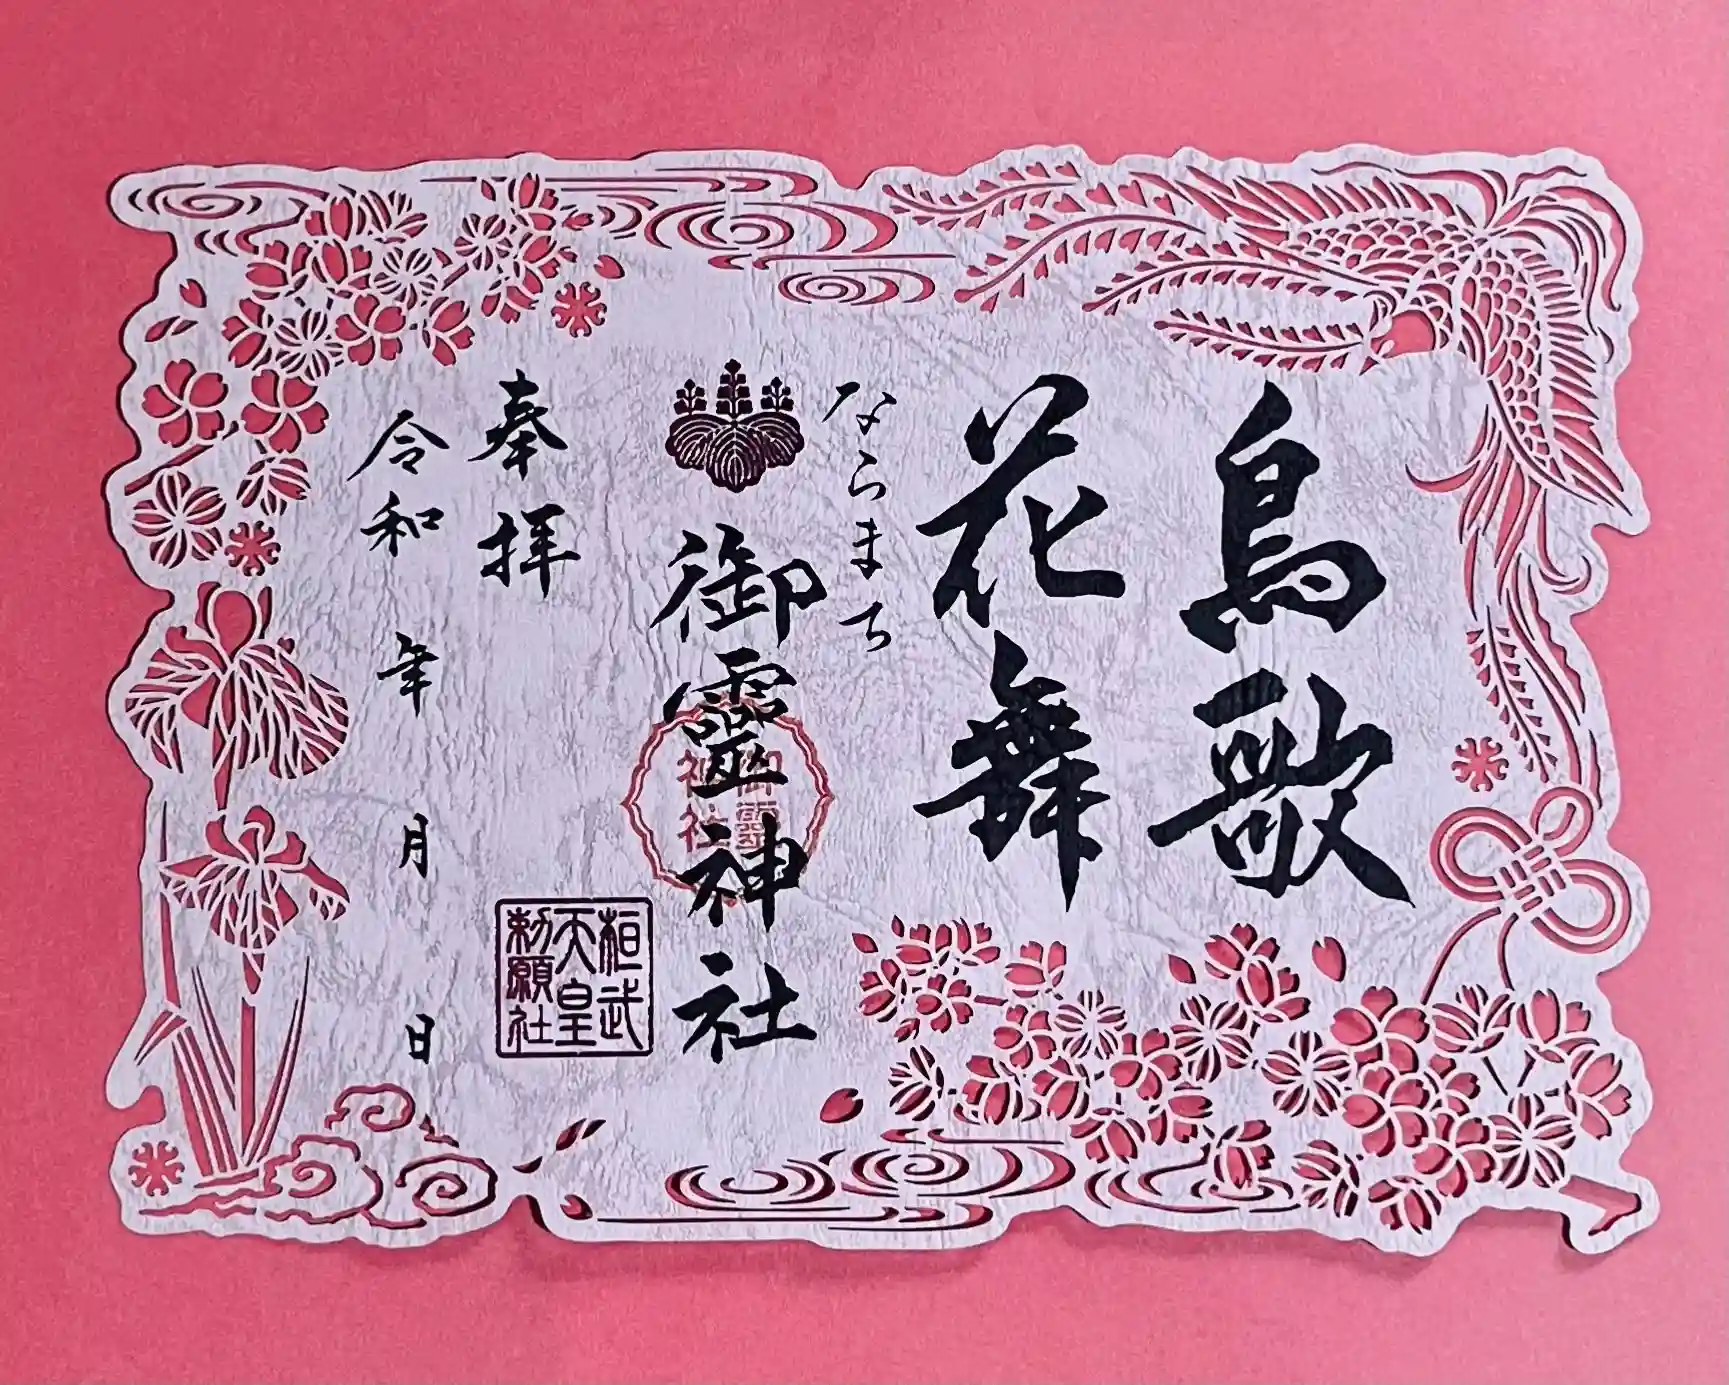 鳥歌
花舞
ならまち
御靈神社
御靈
神社
桓武
天皇
勅願社
奉拝
令和 年 月 日